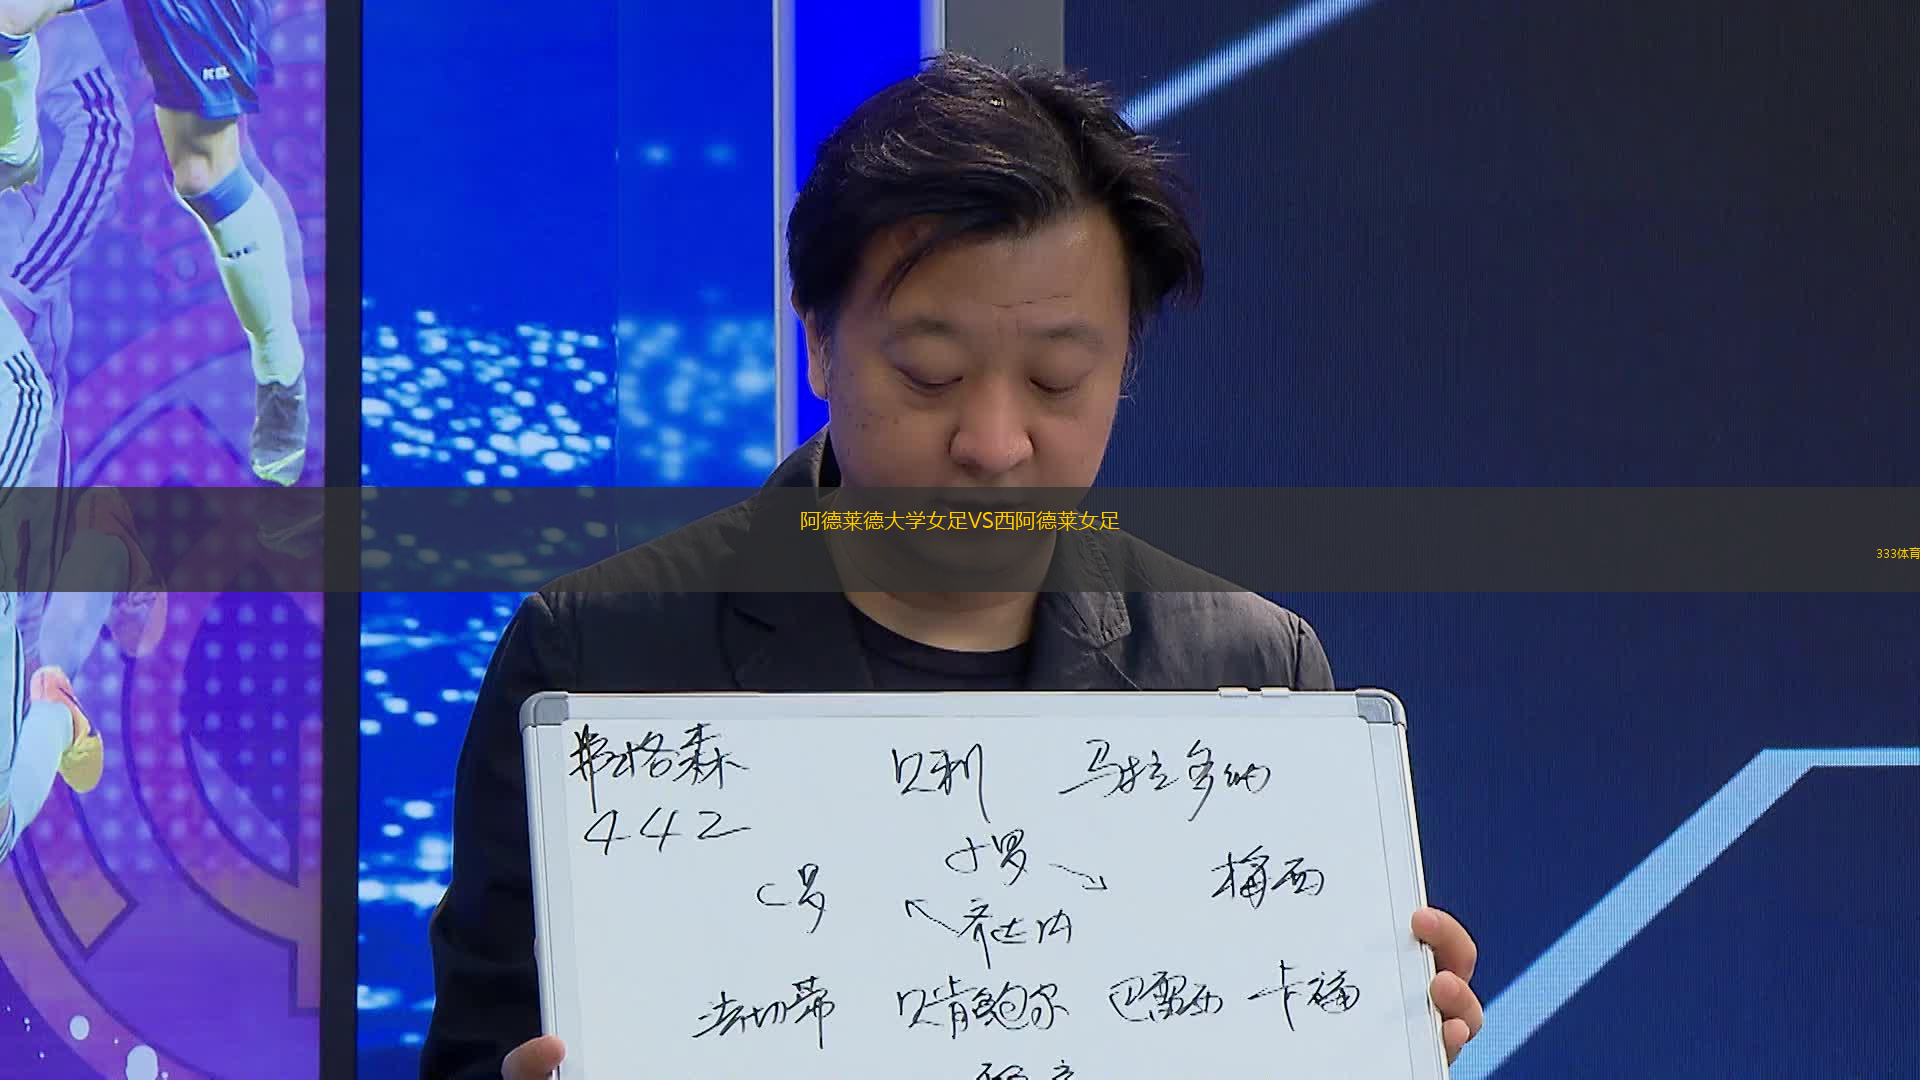 KELME
阿德莱德大学女足VS西阿德莱女足
333体育
弗格森 贝利 马拉多纳
442
小罗
C罗 梅西
齐达内
法切蒂 贝肯鲍尔 巴雷西 卡福